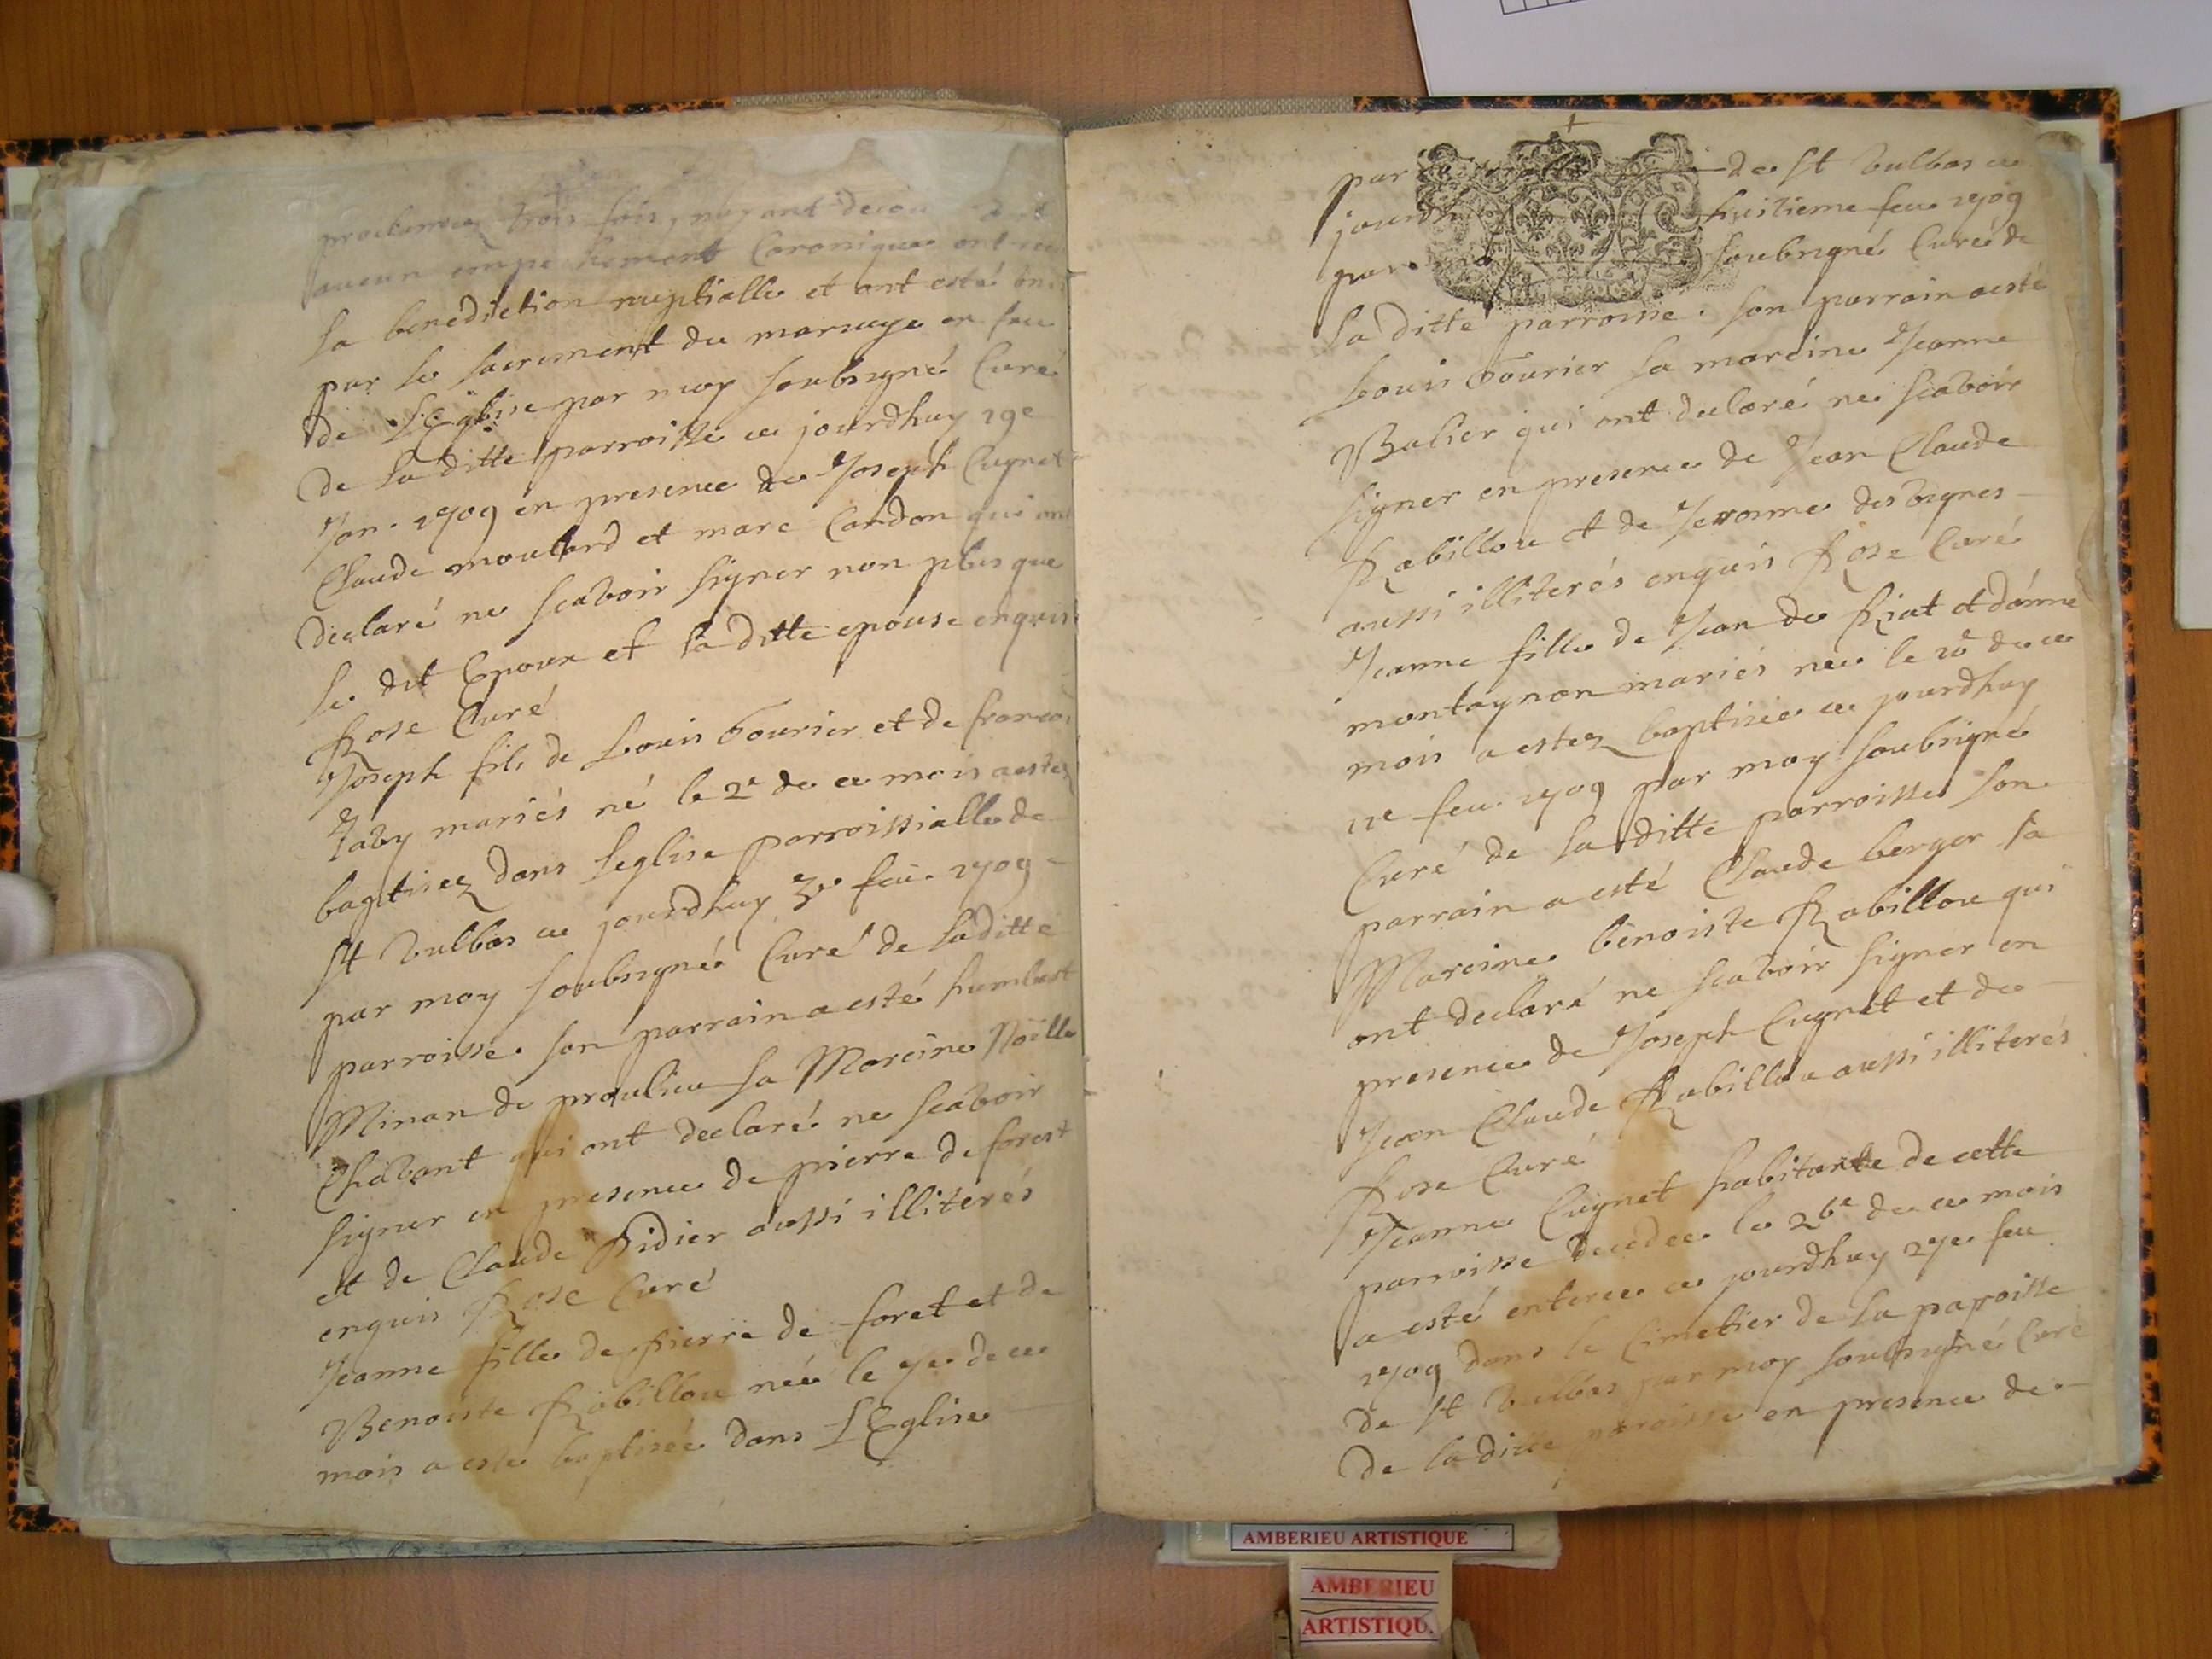 proclamez trois fois, nayant decou
aucun empechement Canonique ont
la benediction nuptialle et ont esté
par le sacrement du mariage en face
de LEglise par moy soubsigné Curé
de la ditte parroisse ce jourdhuy 29e
Jan. 1709 en presence de Joseph Cugnet
Claude moulard et marc Candon qui ont
declaré ne scavoir signer non plus que
le dit Epoux et la ditte epouse enquis
Rose Curé
Joseph fils de Louis Fourier et de
Taby mariés né le 2e de ce mois a estez
baptisez dans leglise parroissialle de
St Vulbas ce jourdhuy 3e feu. 1709
par moy soubsigné Curé de la ditte
parroisse. son parrain a esté humbert
Minan de proulieu sa Mareine Noelle
Chavant qui ont declaré ne scavoir
signer en presence de pierre de forest
et de Claude Didier aussi illiterés
enquis Rose Curé
Jeanne fille de pierre de foret et de
Benoiste Rabillou née le 7e de ce
mois a este baptisée dans LEglise
par de St Vulbas ce
jourdh huitieme feu 1709
par soubsigné Curé de
la ditte parroisse. son parrain a esté
Louis Fourier sa mareine Jeanne
Balier qui ont declaré ne scavoir
signer en presence de Jean Claude
Rabillou et de Jerosme des vignes
aussi illiterés enquis Rose Curé
Jeanne fille de Jean de Riat et
montagnon mariés née le de ce
mois a estez baptisée ce jourdhuy
11e feu 1709 par moy soubsigné
Curé de la ditte parroisse son
parrain a esté Claude berger sa
Mareine benoiste Rabillou qui
ont declaré ne scavoir signer en
presence de Joseph Cugnet et de
Jean Claude Rabillou aussi illiterés
Rose Curé
Jeanne Cugnet habitante de cette
parroisse decedee le 26e de ce mois
a esté enteree ce jourdhuy 27e feu
1709 dans le Cimetier de la parroisse
de St Vulbas par moy soubsigné Curé
de la ditte paroisse en presence de
AMBERIEU ARTISTIQUE
AMBERIEU
ARTISTIQU